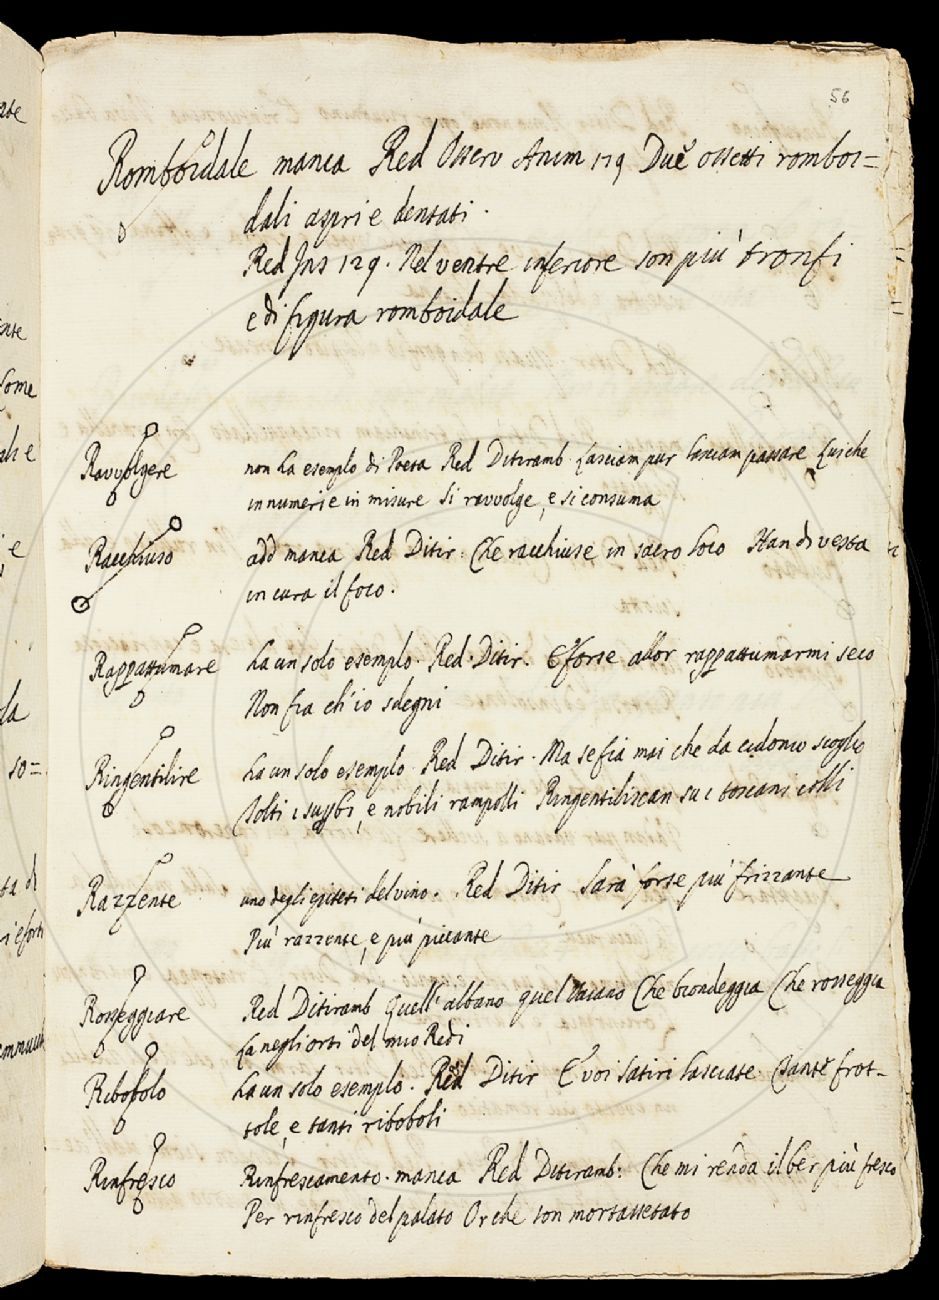 56
Romboidale manca Red Osserv Anim 119 Due ossetti romboi=
dali aspri e dentati.
Red Ins 129. Nel ventre inferiore son più tronfi
e di figura romboidale
Ravvolgere non ha esemplo di Poeta Red Ditiramb. Lasciam pur lasciam passare Lui che
in numeri e in misure Si ravvolge, e si consuma
Racchiuso add manca Red Ditir. Che racchiuse in sacro loco Han di vesta
in cura il foco.
Rappattumare ha un solo esemplo. Red. Ditir. E forse allor rappattumarmi seco
Non fia ch'io sdegni
Ringentilire ha un solo esemplo Red Ditir. Ma se fia mai che da cidonio scoglio
Tolti i superbi, e nobili rampolli Ringentiliscan su i toscani colli
Razzente uno degli epiteti del vino. Red Ditir Sarà forse più frizzante
Più razzente, e più piccante
Rosseggiare Red Ditiramb Quell'albano quel Vaiano Che biondeggia Che rosseggia
La negli orti del mio Redi
Ribobolo ha un solo esemplo. Red Ditir E voi Satiri lasciate Tante frot-
tole, e tanti riboboli
Rinfresco Rinfrescamento. manca Red Ditiramb: Che mi renda il ber più fresco
Per rinfresco del palato Or che son mortassetato